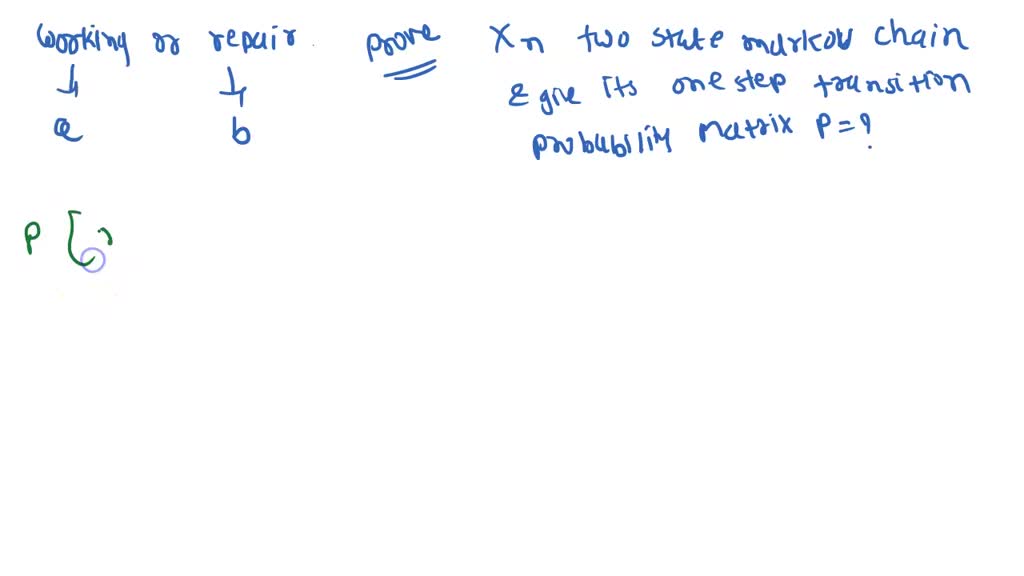 working or repair. prove Xn two state markov chain
& give its one step transition
a b probability matrix P = ?
P [